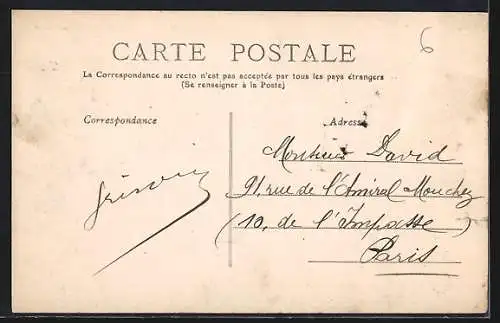 6
CARTE POSTALE
La Correspondance au recto n'est pas acceptée par tous les pays étrangers
(Se renseigner à la Poste)
Correspondance
Adresse
Monsieur David
91, rue de l'Amiral Mouchez
(10, de l'Impasse)
Paris